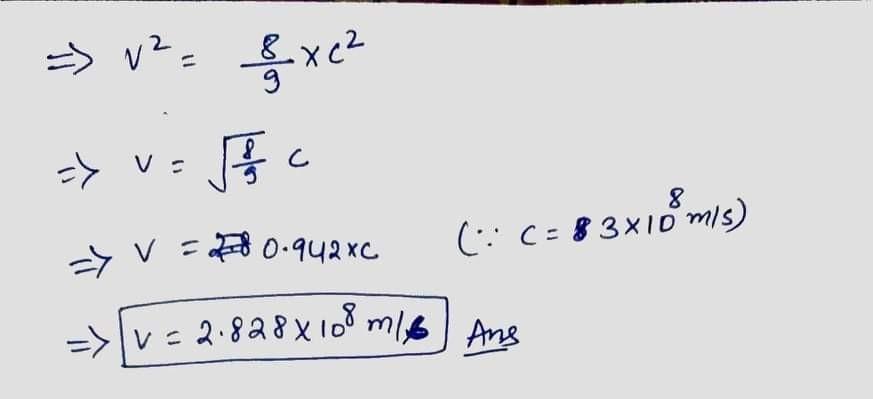 ⇒ v² = 8/9 × c²
⇒ v = √(8/9) c
⇒ v = 0.942×c (∵ c = 3×10⁸ m/s)
⇒ v = 2.828×10⁸ m/s Ans